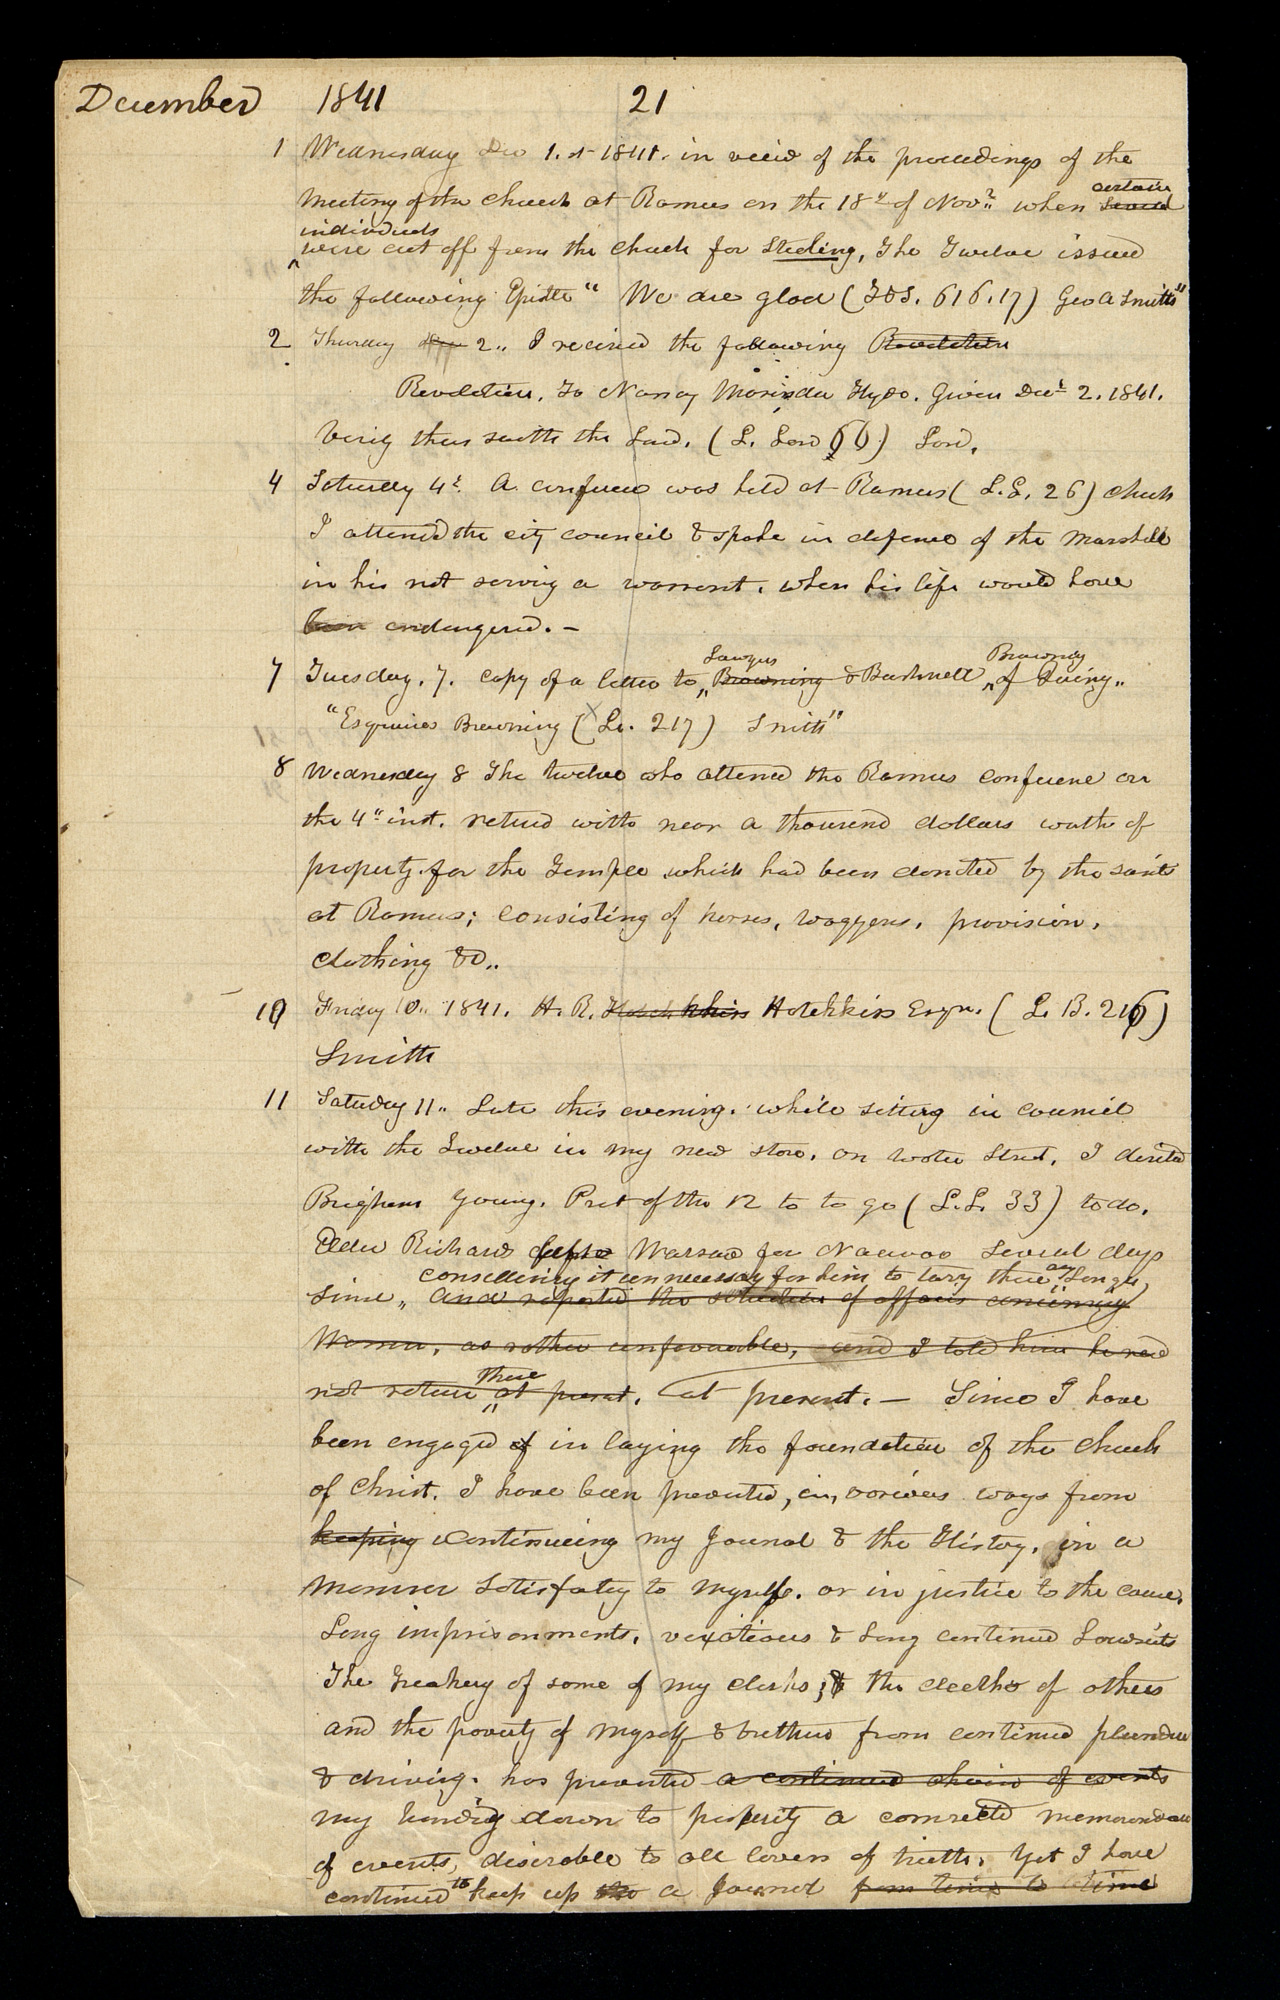 December 1841 21
1 Wednesday Dec 1. st 1841. in veiw of the proceedings of the
Meeting of the church at Ramus on the 18th of Novr. when certain several
individuals
were cut off from the church for Steeling, The Twelve issued
the following Epistle "We are glad (T&S. 616.17) Geo A Smith"
2 Thursday Dec 2.. I received the following Revelation
Revelation. To Nancy Marinda Hyde. Given Decr 2. 1841.
Verily thus saith the Lord. (L. Law 66) Lord.
4 Saturday 4th. A conference was held at Ramus (L.L. 26) church
I attened the city council & spoke in defence of the Marshall
in his not serving a warrent. when his life would have
been endangered. —
7 Tuesday. 7. Copy of a letter to Browning & Bushnell of Quincy..
Lawyers Browning
"Esquires Browning (L. 217) Smith"
8 Wednesday 8 The twelve who attened the Ramus conference on
the 4th inst. returned with near a thousand dollars worth of
property. for the Temple which had been donated by the saints
at Ramus; consisting of horses, waggons, provision,
clothing &c..
10 Friday 10.. 1841. H. R. Hotchkiss Hotchkiss Esqr. (L. B. 216)
Smith
11 Saturday 11.. Late this evening. while sitting in council
with the Twelve in my new store, on water street, I directed
Brigham Young. Prest of the 12 to to go (L.L. 33) to do.
Elder Richards left Warsaw for Nauvoo several days
considering it unnecessary for him to tary there any longer,
since and reported the situation of affairs concerning
Warren, as rather unfavorable, and I told him he need
not return there at present. at present. — Since I have
been engaged of in laying the foundation of the church
of Christ. I have been prevented, in, various ways from
keeping continueing my Journal & the History, in a
Manner satisfactory to myself. or in justice to the cause.
Long imprisonments, vexatious & long continued Lawsuits
The treachery of some of my clerks; & the deaths of others
and the poverty of myself & brethren from continued plunder
& driving. has prevented a continued chain of events
my handing down to posterity a connected memorandum
of events, desirable to all lovers of truth. Yet I have
continued to keep up the a Journal from time to time